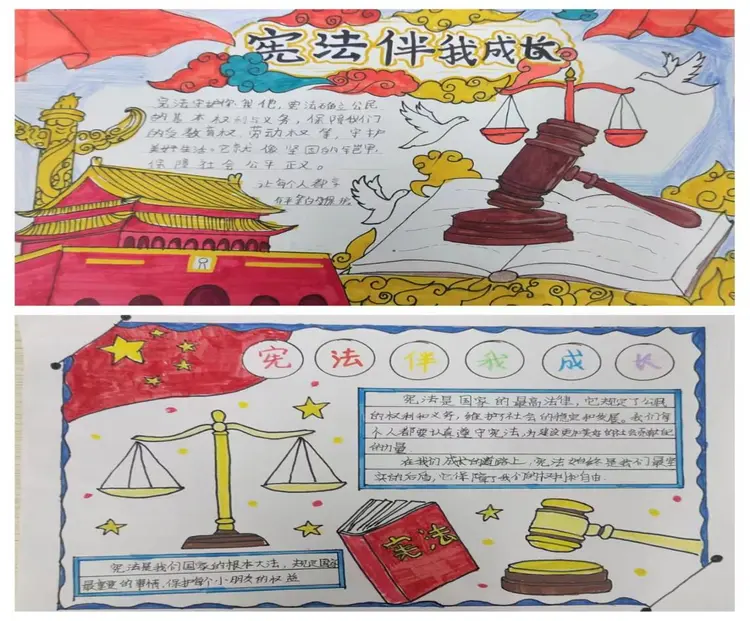 宪法伴我成长
宪法守护你我他,宪法确立公民
的基本权利与义务,保障我们
的受教育权、劳动权等,守护
美好生活。它就像坚固的铠甲,
保障社会公平正义。
让每个人都享
宪法伴我成长
宪法是国家的最高法律,它规定了公民
的权利和义务,维护了社会的稳定和发展。我们每
个人都要认真遵守宪法,为建设更加美好的社会贡献自己
的力量。
在我们成长的道路上,宪法始终是我们最坚
实的后盾,它保障了我们的权利和自由.
宪法
宪法是我们国家的根本大法,规定国家
最重要的事情、保护每个小朋友的权益